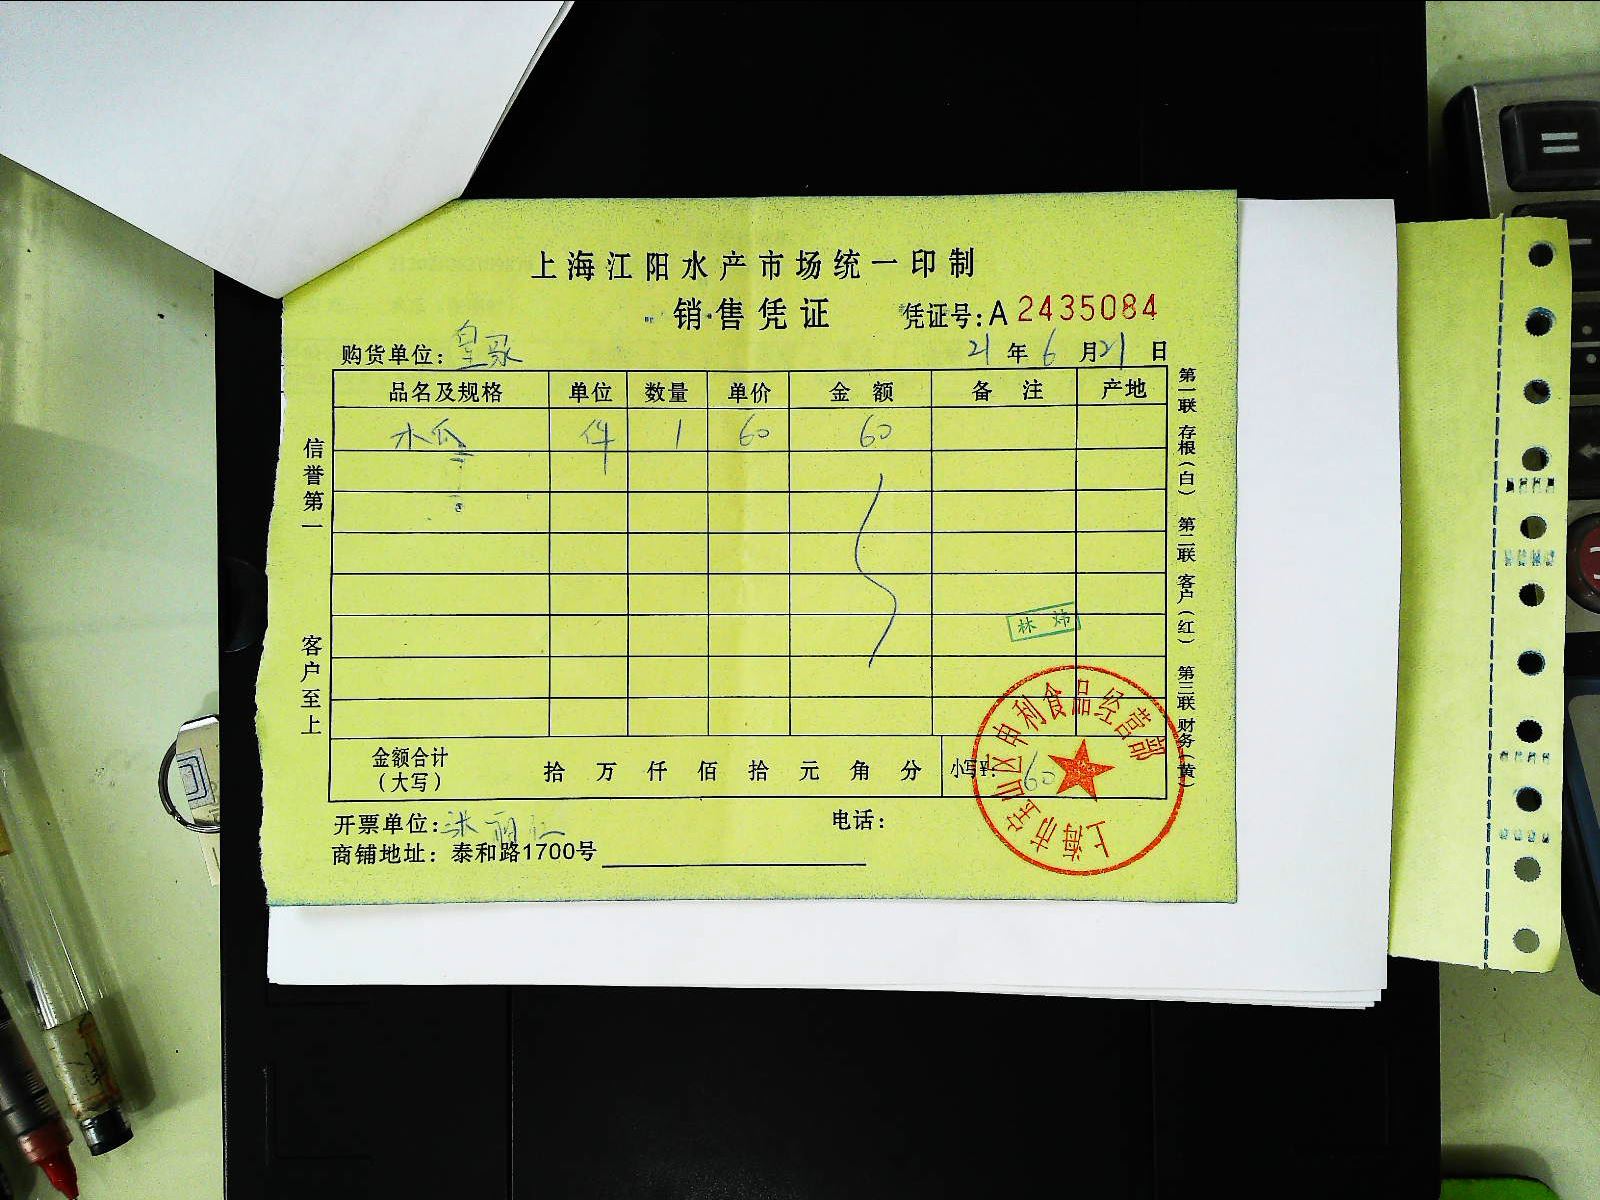 上海江阳水产市场统一印制
销售凭证 凭证号:A 2435084
购货单位:皇家 21年6月21日
品名及规格 单位 数量 单价 金额 备注 产地
木瓜 件 1 60 60
林炜
金额合计(大写) 拾 万 仟 佰 拾 元 角 分 小写¥: 60
开票单位:
电话:
商铺地址: 泰和路1700号
信誉第一 客户至上
第一联 存根(白) 第二联 客户(红) 第三联 财务(黄)
上海市宝山区申利食品经营部
=